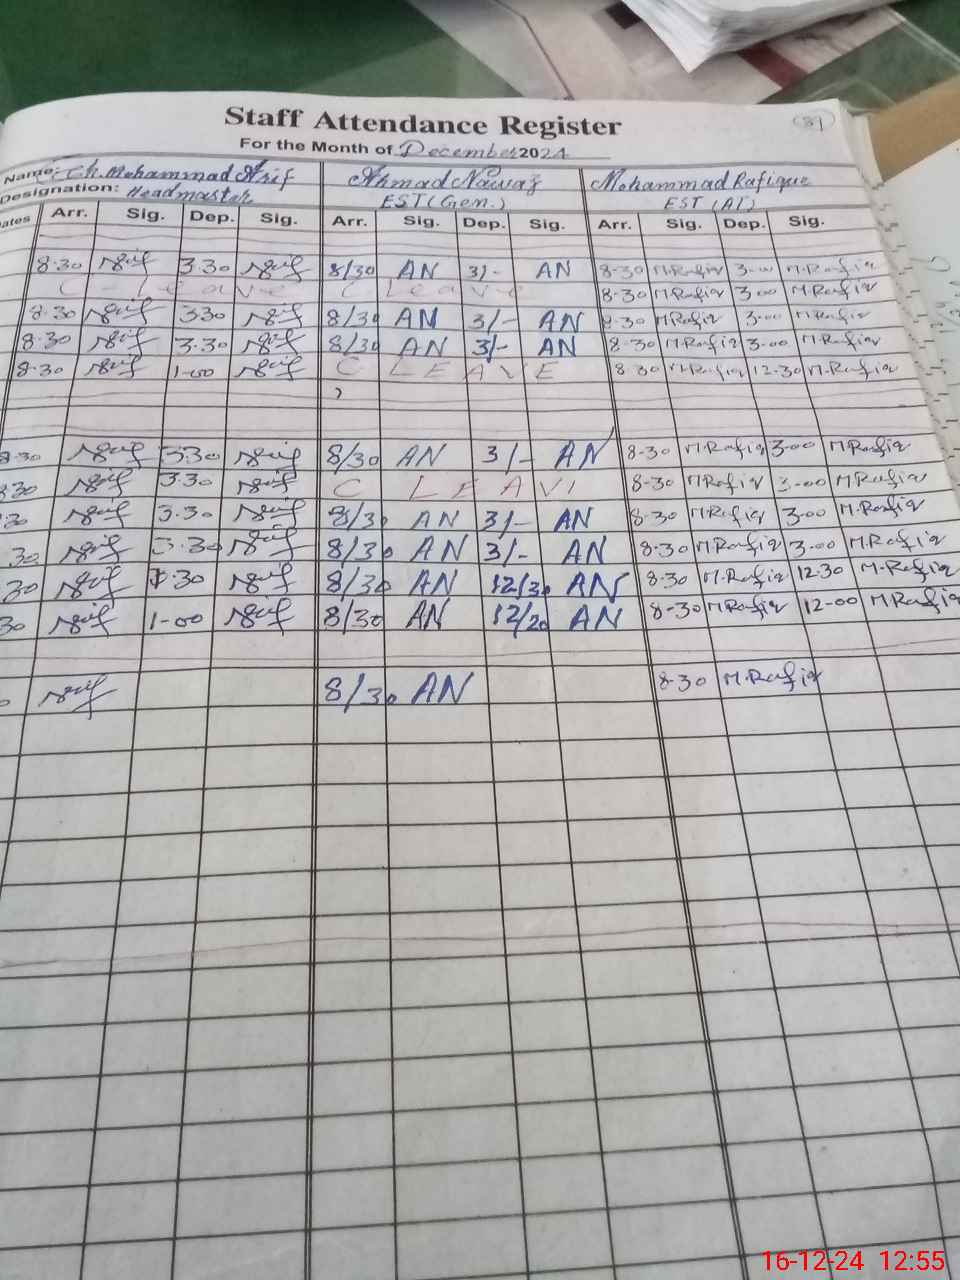 Staff Attendance Register
87
For the Month of December 2024
Name: Ch. Mohammad Arif Ahmad Nawaz Mohammad Rafique
Designation: Headmaster EST (Gen.) EST (AT)
ates Arr. Sig. Dep. Sig. Arr. Sig. Dep. Sig. Arr. Sig. Dep. Sig.
8.30 3.30 8/30 AN 3/- AN 8-30 M.Rafiq 3-00 M.Rafiq
C - Leave C Leave 8-30 M.Rafiq 3-00 M.Rafiq
8.30 330 8/30 AN 3/- AN 8-30 M.Rafiq 3-00 M.Rafiq
8.30 3.30 8/30 AN 3/- AN 8-30 M.Rafiq 3-00 M.Rafiq
8.30 1-00 C LEAVE 8.30 M.Rafiq 12.30 M.Rafiq
8.30 330 8/30 AN 3/- AN 8-30 M.Rafiq 3-00 M.Rafiq
830 3.30 C LEAV 8-30 M.Rafiq 3-00 M.Rafiq
30 3.30 8/30 AN 3/- AN 8-30 M.Rafiq 3-00 M.Rafiq
30 3.30 8/30 AN 3/- AN 8-30 M.Rafiq 3-00 M.Rafiq
30 30 8/30 AN 12/30 AN 8-30 M.Rafiq 12.30 M.Rafiq
30 1-00 8/30 AN 12/20 AN 8-30 M.Rafiq 12-00 M.Rafiq
8/30 AN 8-30 M.Rafiq
16-12-24 12:55